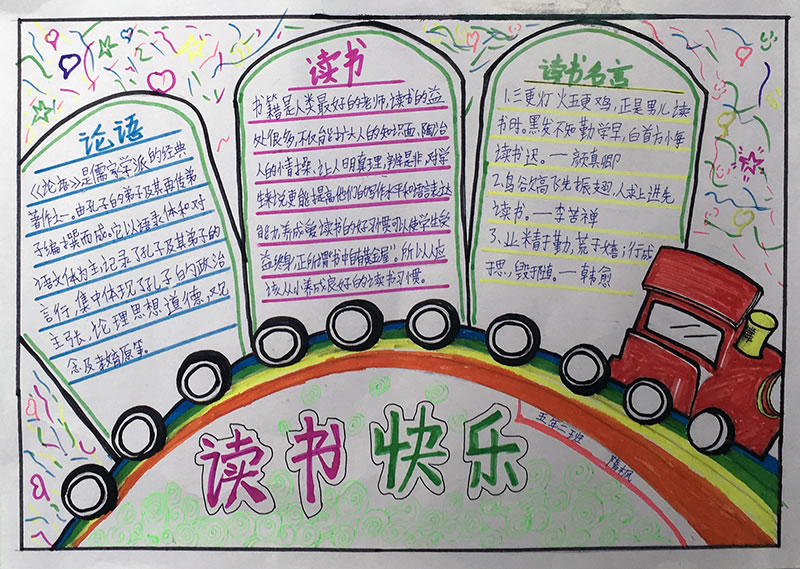 论语
《论语》是儒家学派的经典
著作之一。由孔子的弟子及其再传弟
子编撰而成。它以语录体和对
话文体为主,记录了孔子及其弟子的
言行,集中体现了孔子的政治
主张,伦理思想道德、观
念及教育原等。
读书
书籍是人类最好的老师,读书的益
处很多,不仅能扩大人的知识面,陶冶
人的情操,让人明真理,辨是非,对学
生来说更能提高他们的写作水平和语言表达
能力养成爱读书的好习惯可以使学生受
益终身,正所谓"书中自有黄金屋"。所以人应
该从小养成良好的读书习惯。
读书名言
1.三更灯火五更鸡,正是男儿读
书时。黑发不知勤学早,白首方悔
读书迟。—颜真卿
2.鸟欲高飞先振翅,人求上进先
读书。—李苦禅
3、业精于勤,荒于嬉;行成
于思,毁于随。—韩愈
读书快乐
五年二班
隋枫